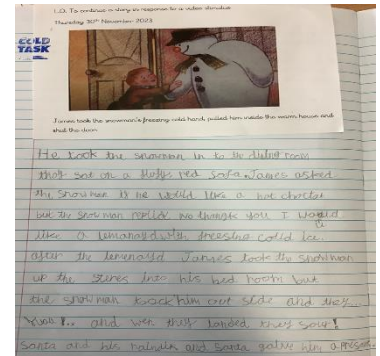 L.O. To continue a story in response to a video stimulus
Thursday 30th November 2023
COLD
TASK
James took the snowman's freezing cold hand, pulled him inside the warm house and
shut the door.
He took the snowman in to the room
they sat on a red sofa. James asked
the snowman if he would like a hot
but the snow man no thangk you I would
like a with freesing cold ice.
after the James took the snowman
up the into his bed room but
the snow man took him out side and they...
and wen they landed they
santa and his and santa him a